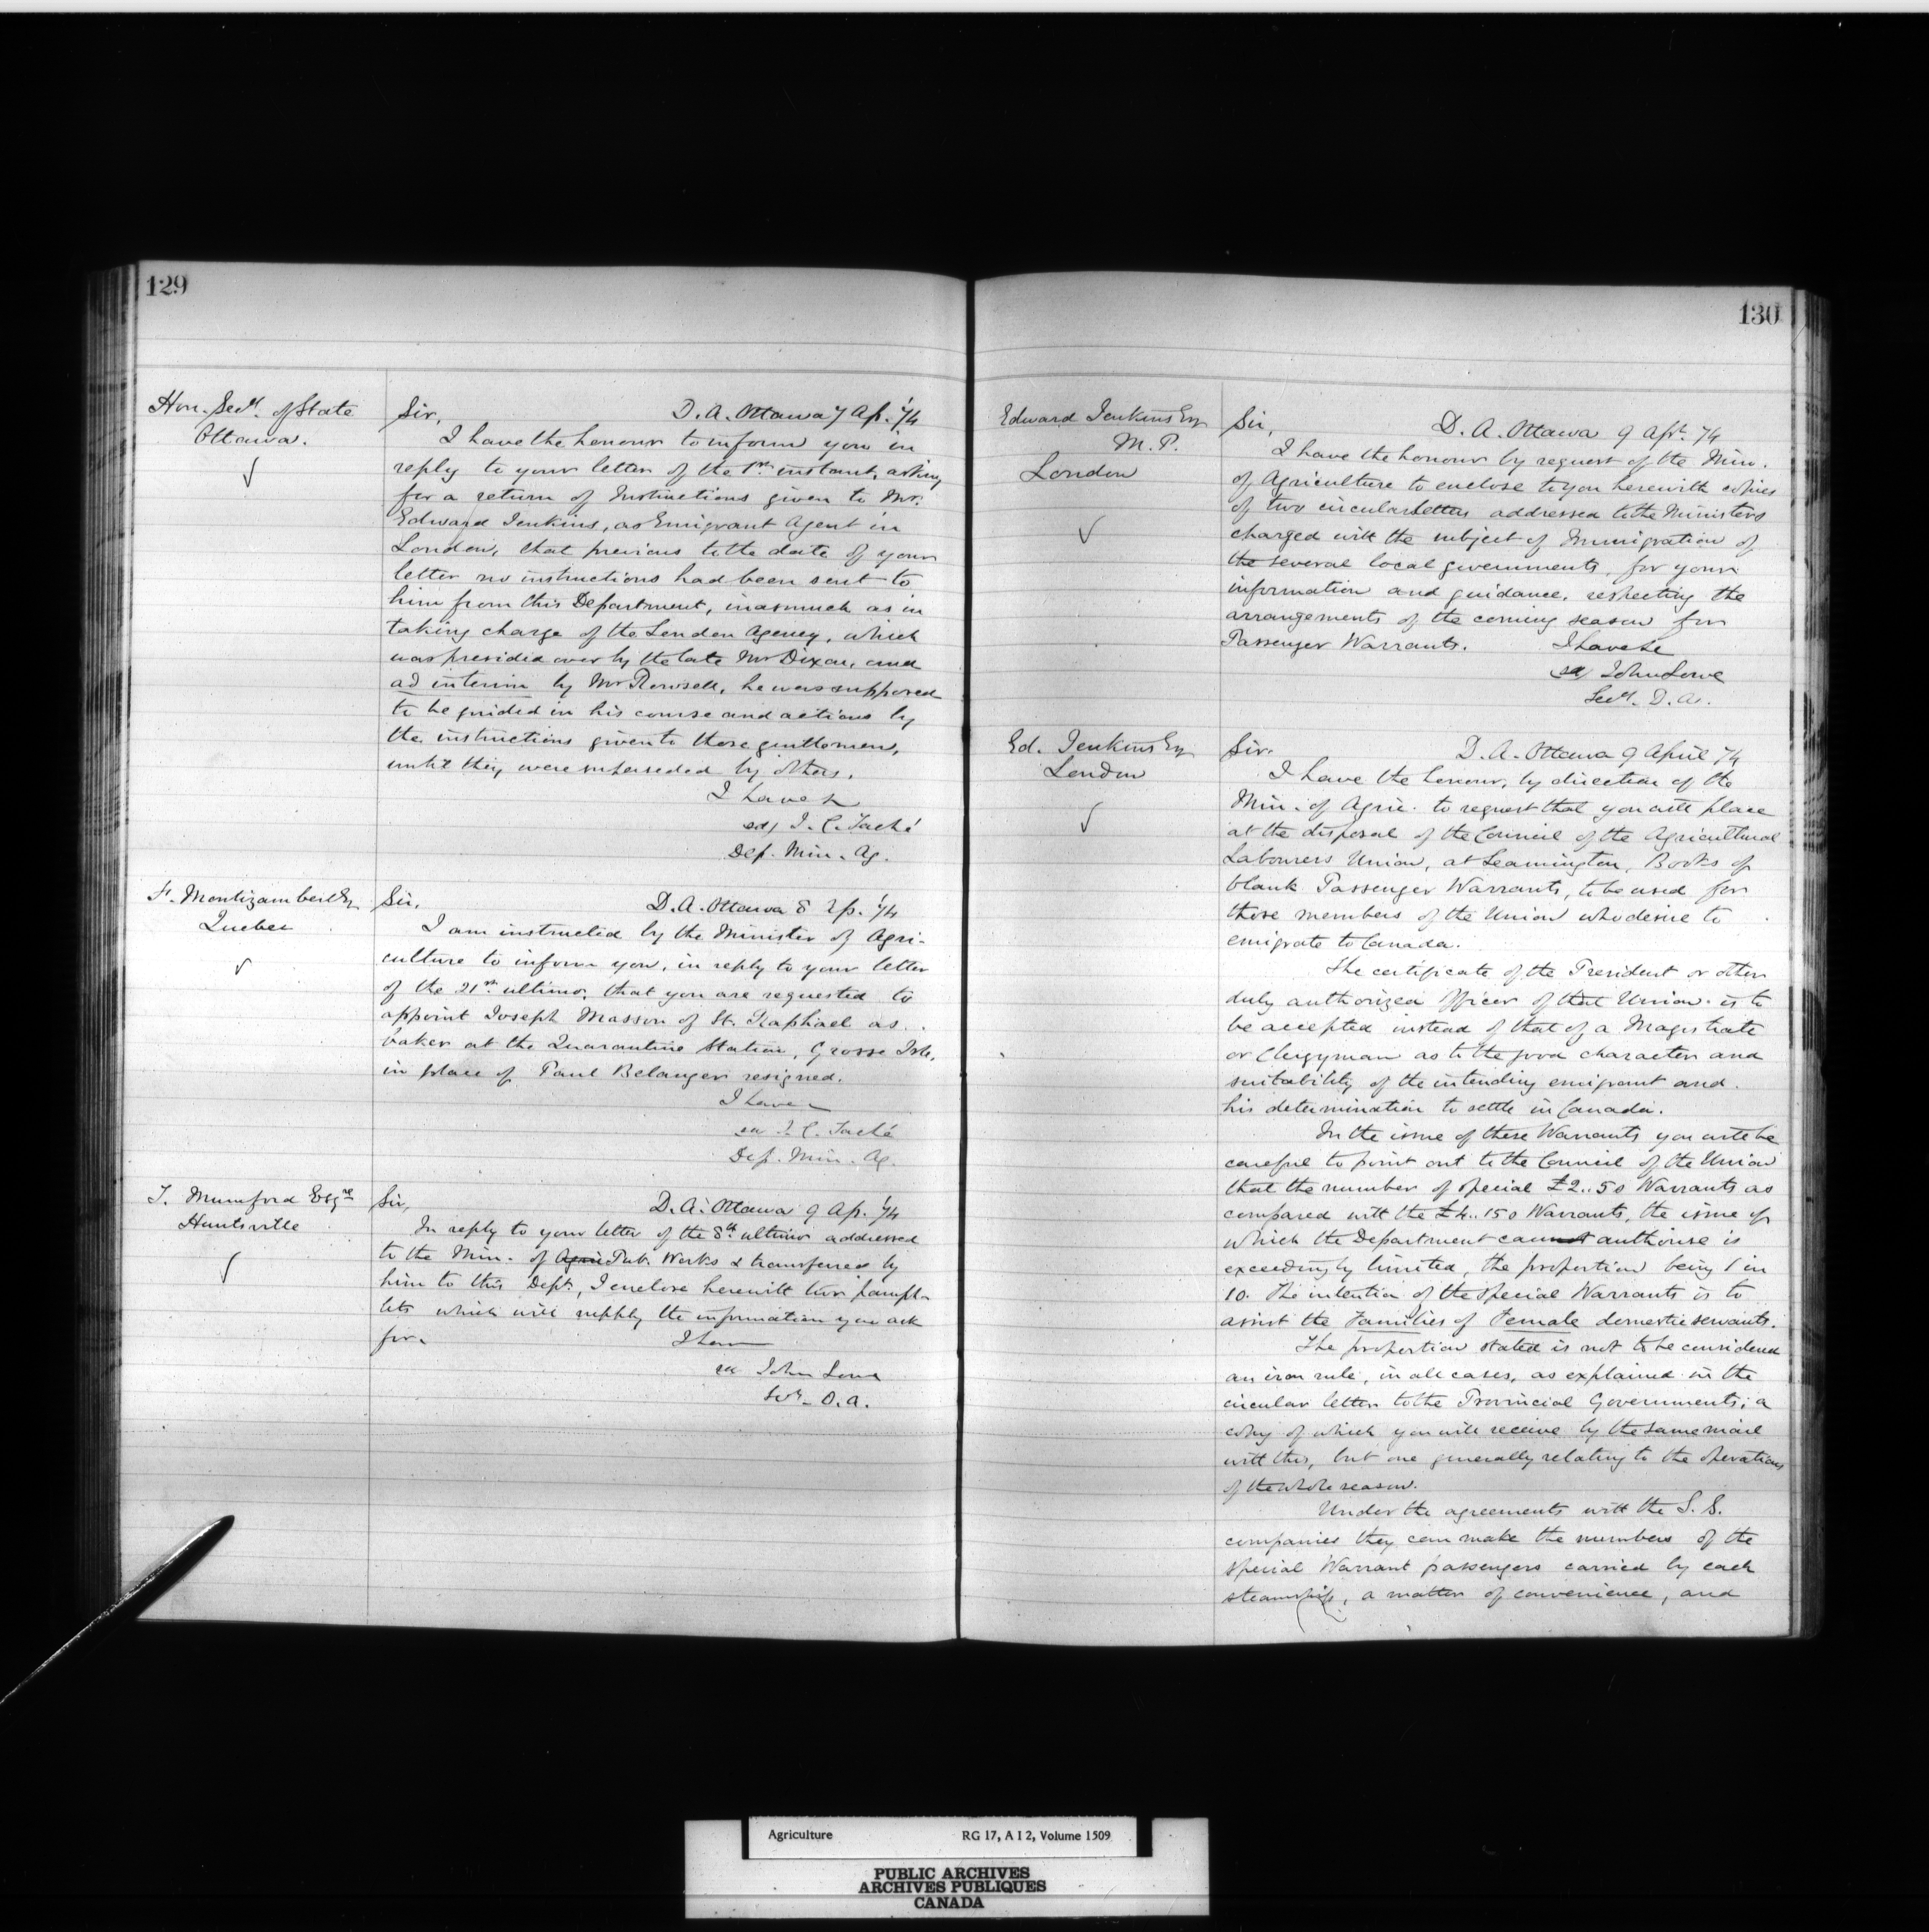 129
Hon. Secy. of State
Ottawa.
Sir, D. A. Ottawa 7 Ap. '74
I have the honour to inform you in
reply to your letter of the 1st instant, asking
for a return of Instructions given to Mr.
Edward Jenkins, as Emigrant Agent in
London, that previous to the date of your
letter no instructions had been sent to
him from this Department, inasmuch as in
taking charge of the London Agency, which
was presided over by the late Mr Dixon, and
ad interim by Mr Rowsell, he was supposed
to be guided in his course and actions by
the instructions given to those gentlemen,
until they were superseded by others.
I have &
sd/ J. C. Taché
Dep. Min. Ag.
F. Montizambert Esq
Quebec
Sir, D. A. Ottawa 8 Ap. '74
I am instructed by the Minister of Agri-
culture to inform you, in reply to your letter
of the 21st ultimo, that you are requested to
appoint Joseph Masson of St. Raphael as
baker at the Quarantine Station, Grosse Isle,
in place of Paul Belanger resigned.
I have
sd J. C. Taché
Dep. Min. Ag.
T. Mumford Esqre
Huntsville
Sir, D. A. Ottawa 9 Ap. '74
In reply to your letter of the 8th ultimo addressed
to the Min. of Agric Pub. Works & transferred by
him to this Dept, I enclose herewith two pamph-
lets which will supply the information you ask
for. I have
sd John Lowe
Secy. D. A.
130
Edward Jenkins Esq
M. P.
London
Sir, D. A. Ottawa 9 Apl. 74
I have the honour by request of the Min.
of Agriculture to enclose to you herewith copies
of two circular letters addressed to the Ministers
charged with the subject of Immigration of
the several local governments, for your
information and guidance, respecting the
arrangements of the coming season for
Passenger Warrants. I have &c
sd/ John Lowe
Secy. D. A.
Ed. Jenkins Esq
London
Sir. D. A. Ottawa 9 April 74
I have the honour, by direction of the
Min. of Agric. to request that you will place
at the disposal of the Council of the Agricultural
Labourers Union, at Leamington, Books of
blank Passenger Warrants, to be used for
those members of the Union who desire to
emigrate to Canada.
The certificate of the President or other
duly authorized Officer of that Union is to
be accepted instead of that of a Magistrate
or Clergyman as to the good character and
suitability of the intending emigrant and
his determination to settle in Canada.
In the issue of these Warrants you will be
careful to point out to the Council of the Union
that the number of special £2..5 0 Warrants as
compared with the £4..15 0 Warrants, the issue of
which the Department cannot authorise is
exceedingly limited, the proportion being 1 in
10. The intention of the special Warrants is to
assist the Families of Female domestic servants.
The proportion stated is not to be considered
an iron rule, in all cases, as explained in the
circular letter to the Provincial Governments; a
copy of which you will receive by the same mail
with this, but one generally relating to the operations
of the whole season.
Under the agreements with the S. S.
companies they can make the numbers of the
special Warrant passengers carried by each
steamship, a matter of convenience, and
Agriculture RG 17, A I 2, Volume 1509
PUBLIC ARCHIVES
ARCHIVES PUBLIQUES
CANADA